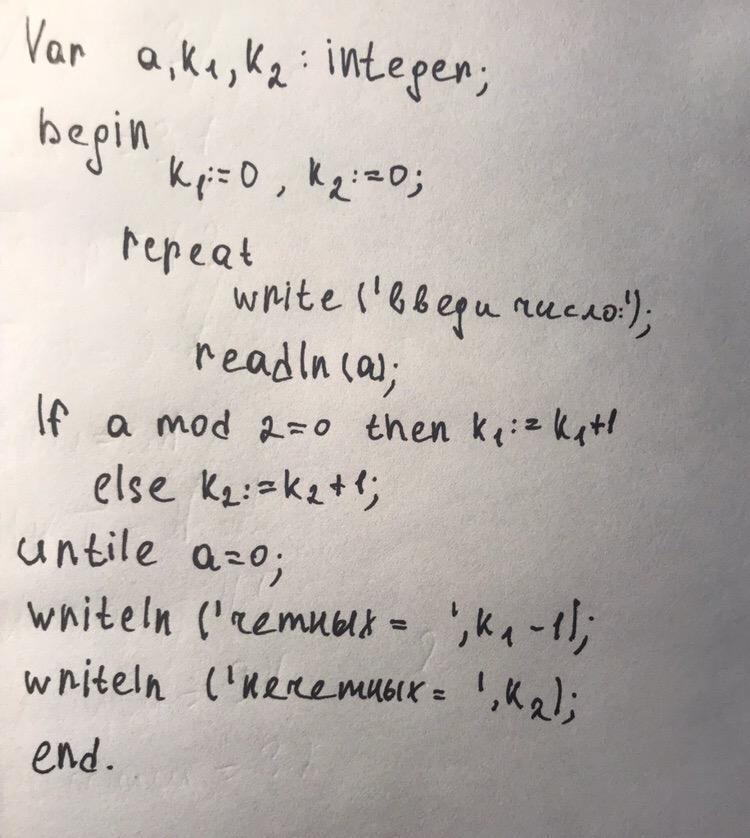 Var a, k1, k2 : integer;
begin
k1:=0, k2:=0;
repeat
write ('введи число:');
readln (a);
If a mod 2=0 then k1:=k1+1
else k2:=k2+1;
untile a=0;
writeln ('четных = ', k1 -1);
writeln ('нечетных = ', k2);
end.